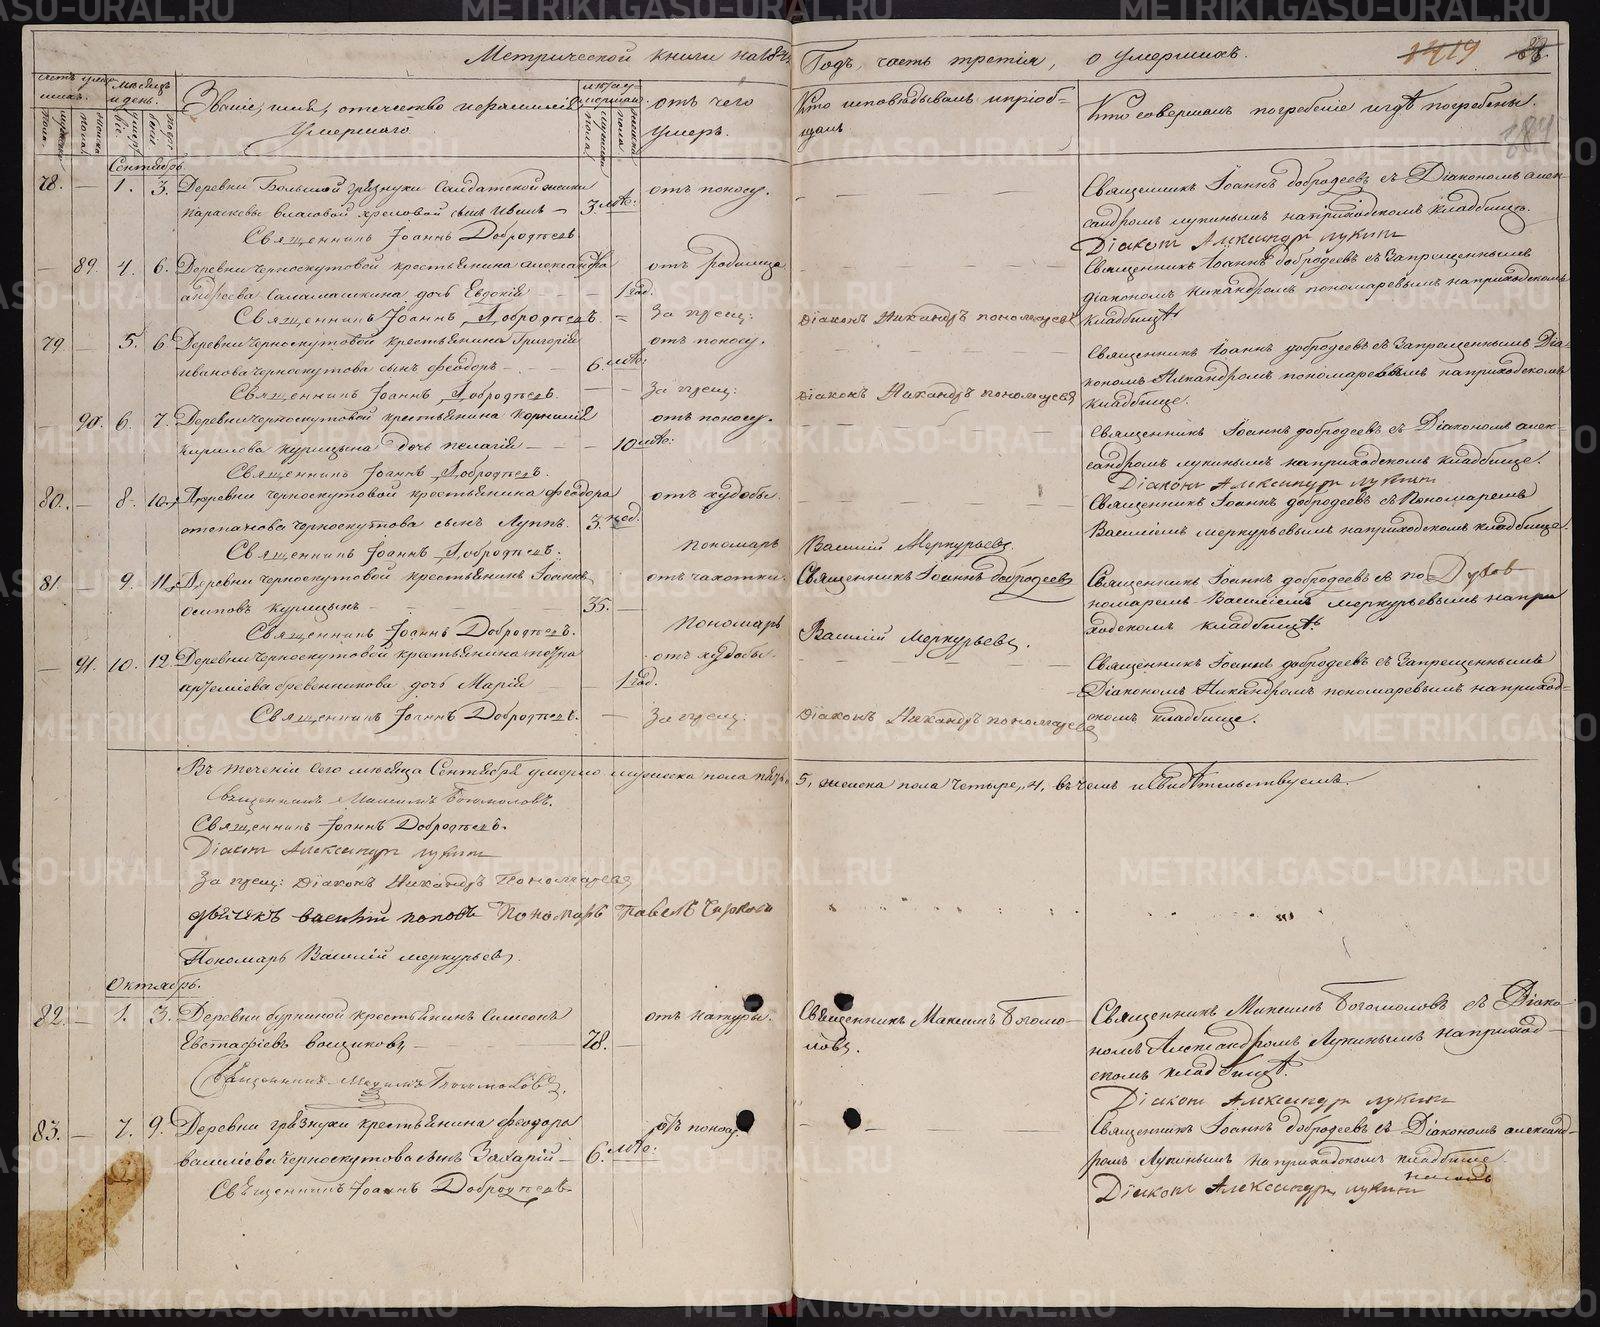 Метрической книги на 18
Годъ, часть третія, о умершихъ.
1419
384
Счетъ умер-
шихъ.
Мѣсяцъ
и день.
Званіе, имя, отечество и фамилія
умершаго.
Лѣта у-
мершаго.
отъ чего
умеръ.
Кто исповѣдывалъ и пріоб-
щалъ
Кто совершалъ погребеніе и гдѣ погребены.
Сентябрь
78. — 1. 3. Деревни Большой Грязнухи Солдатской жены 3. мѣс: отъ поносу.
Параскевы Власовой сынъ Иванъ —
Священникъ Іоаннъ Добродѣевъ
Священникъ Іоаннъ Добродеевъ съ Діакономъ Алек-
сандромъ Лукинымъ на приходскомъ кладбищѣ.
Діаконъ Александръ Лукинъ
— 89. 4. 6. Деревни Черноскутовой крестьянина Александра отъ родимца
Андреева Саламашкина дочь Евдокія — 1 год.
Священникъ Іоаннъ Добродѣевъ. За прещ: Діаконъ Никандръ Пономаревъ
Священникъ Іоаннъ Добродеевъ съ Запрещеннымъ
діакономъ Никандромъ Пономаревымъ на приходскомъ
кладбищѣ
79 — 5. 6 Деревни Черноскутовой крестьянина Григорія отъ поносу.
Иванова Черноскутова сынъ Феодоръ — 6. мѣс:
Священникъ Іоаннъ Добродѣевъ. За прещ: Діаконъ Никандръ Пономаревъ
Священникъ Іоаннъ Добродеевъ съ Запрещеннымъ Діа-
кономъ Никандромъ Пономаревымъ на приходскомъ
кладбище.
— 90. 6. 7. Деревни Черноскутовой крестьянина Корнилія отъ поносу.
Кирилова Курицына дочь Пелагія — 10 мѣс:
Священникъ Іоаннъ Добродѣевъ.
Священникъ Іоаннъ Добродеевъ съ Діакономъ Алек-
сандромъ Лукинымъ на приходскомъ кладбище.
Діаконъ Александръ Лукинъ
80. — 8. 10. Деревни Черноскутовой крестьянина Феодора отъ худобы.
Степанова Черноскутова сынъ Луппъ. 3. нед.
Священникъ Іоаннъ Добродѣевъ. Пономарь Василій Меркурьевъ.
Священникъ Іоаннъ Добродеевъ съ Пономаремъ
Василіемъ Меркурьевымъ на приходскомъ кладбище.
81. — 9. 11. Деревни Черноскутовой крестьянинъ Іоаннъ отъ чахотки. Священникъ Іоаннъ Добродеевъ
Осиповъ Курицынъ — 35. —
Священникъ Іоаннъ Добродѣевъ. Пономарь Василій Меркурьевъ.
Священникъ Іоаннъ Добродеевъ съ по-
номаремъ Василіемъ Меркурьевымъ на при
ходскомъ кладбищѣ.
— 91. 10. 12. Деревни Черноскутовой крестьянина Петра отъ худобы.
Артеміева Бревенникова дочь Марія — 1 год.
Священникъ Іоаннъ Добродѣевъ. — За прещ: Діаконъ Никандръ Пономаревъ
Священникъ Іоаннъ Добродеевъ съ Запрещеннымъ
Діакономъ Никандромъ Пономаревымъ на приход-
скомъ кладбище.
Въ теченіи сего мѣсяца Сентября умерло мужеска пола пять 5, женска пола четыре, 4, въ чемъ и свидѣтельствуемъ.
Священникъ Максимъ Богомоловъ.
Священникъ Іоаннъ Добродѣевъ.
Діаконъ Александръ Лукинъ
За прещ: Діаконъ Никандръ Пономаревъ
Дьячекъ Василій Поповъ Пономарь Павелъ
Пономарь Василій Меркурьевъ.
Октябрь.
82. — 1. 3. Деревни Буркиной крестьянинъ Симеонъ отъ натуры. Священникъ Максимъ Богомо-
Евстафіевъ Вощиковъ, — 78. — ловъ.
Священникъ Максимъ Богомоловъ.
Священникъ Максимъ Богомоловъ съ Діако-
номъ Александромъ Лукинымъ на приход-
скомъ кладбищѣ.
Діаконъ Александръ Лукинъ
83. — 7. 9. Деревни Грязнухи крестьянина Феодора отъ поносу.
Василіева Черноскутова сынъ Захарій — 6. мѣс.
Священникъ Іоаннъ Добродѣевъ
Священникъ Іоаннъ Добродеевъ съ Діакономъ Александ-
ромъ Лукинымъ на приходскомъ кладбище.
Діаконъ Александръ Лукинъ
METRIKI.GASO-URAL.RU